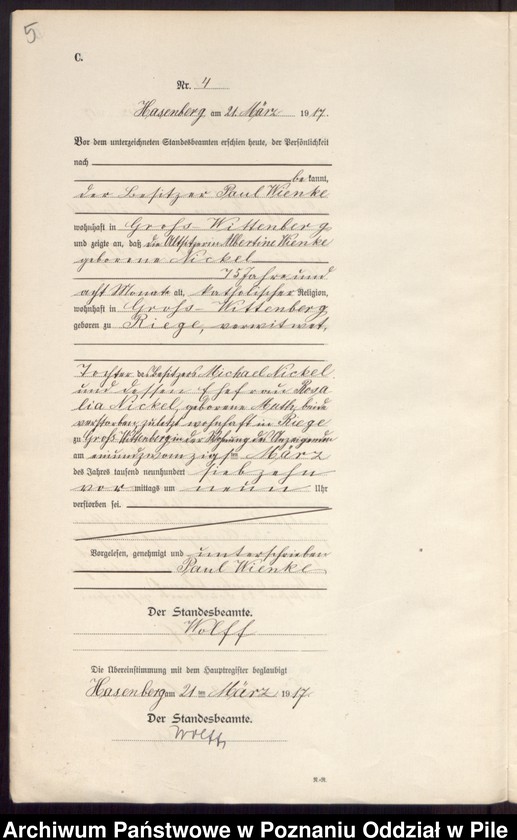 5
C.
Nr. 4
Hasenberg am 21. März 1917.
Vor dem unterzeichneten Standesbeamten erschien heute, der Persönlichkeit
nach
be kannt,
der Besitzer Paul Wienke
wohnhaft in Groß-Wittenberg
und zeigte an, daß die Altsitzerin Albertine Wienke
geborene Nickel
75 Jahre und
acht Monate alt, katholischer Religion,
wohnhaft in Groß-Wittenberg
geboren zu Riege, verwitwet,
Tochter des Besitzers Michael Nickel
und dessen Ehefrau Rosa
lia Nickel, geborene beide
verstorben, zuletzt wohnhaft in Riege
zu Groß Wittenberg in der Wohnung des Anzeigenden
am einundzwanzigsten März
des Jahres tausend neunhundert siebzehn
vor mittags um neun Uhr
verstorben sei.
Vorgelesen, genehmigt und unterschrieben
Paul Wienke
Der Standesbeamte.
Wolff
Die Übereinstimmung mit dem Hauptregister beglaubigt
Hasenberg am 21 ten März 1917
Der Standesbeamte.
Wolff
Archiwum Państwowe w Poznaniu Oddział w Pile